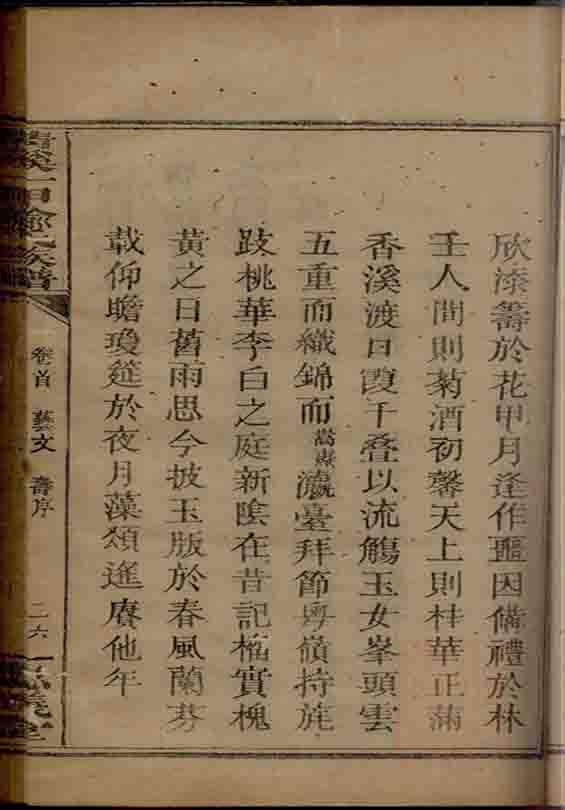 欣添籌於花甲月逢作噩因備禮於林
壬人間則菊酒初馨天上則桂華正滿
香溪渡口霞千叠以流觴玉女峯頭雲
五重而織錦而嵩嶽瀛臺拜節粤嶺持旄
跂桃華李白之庭新陰在昔記槐實槐
黃之日舊雨思今披玉版於春風蘭芬
載仰瞻瓊筵於夜月藻頌遙賡他年
卷首 藝文 壽序
二六